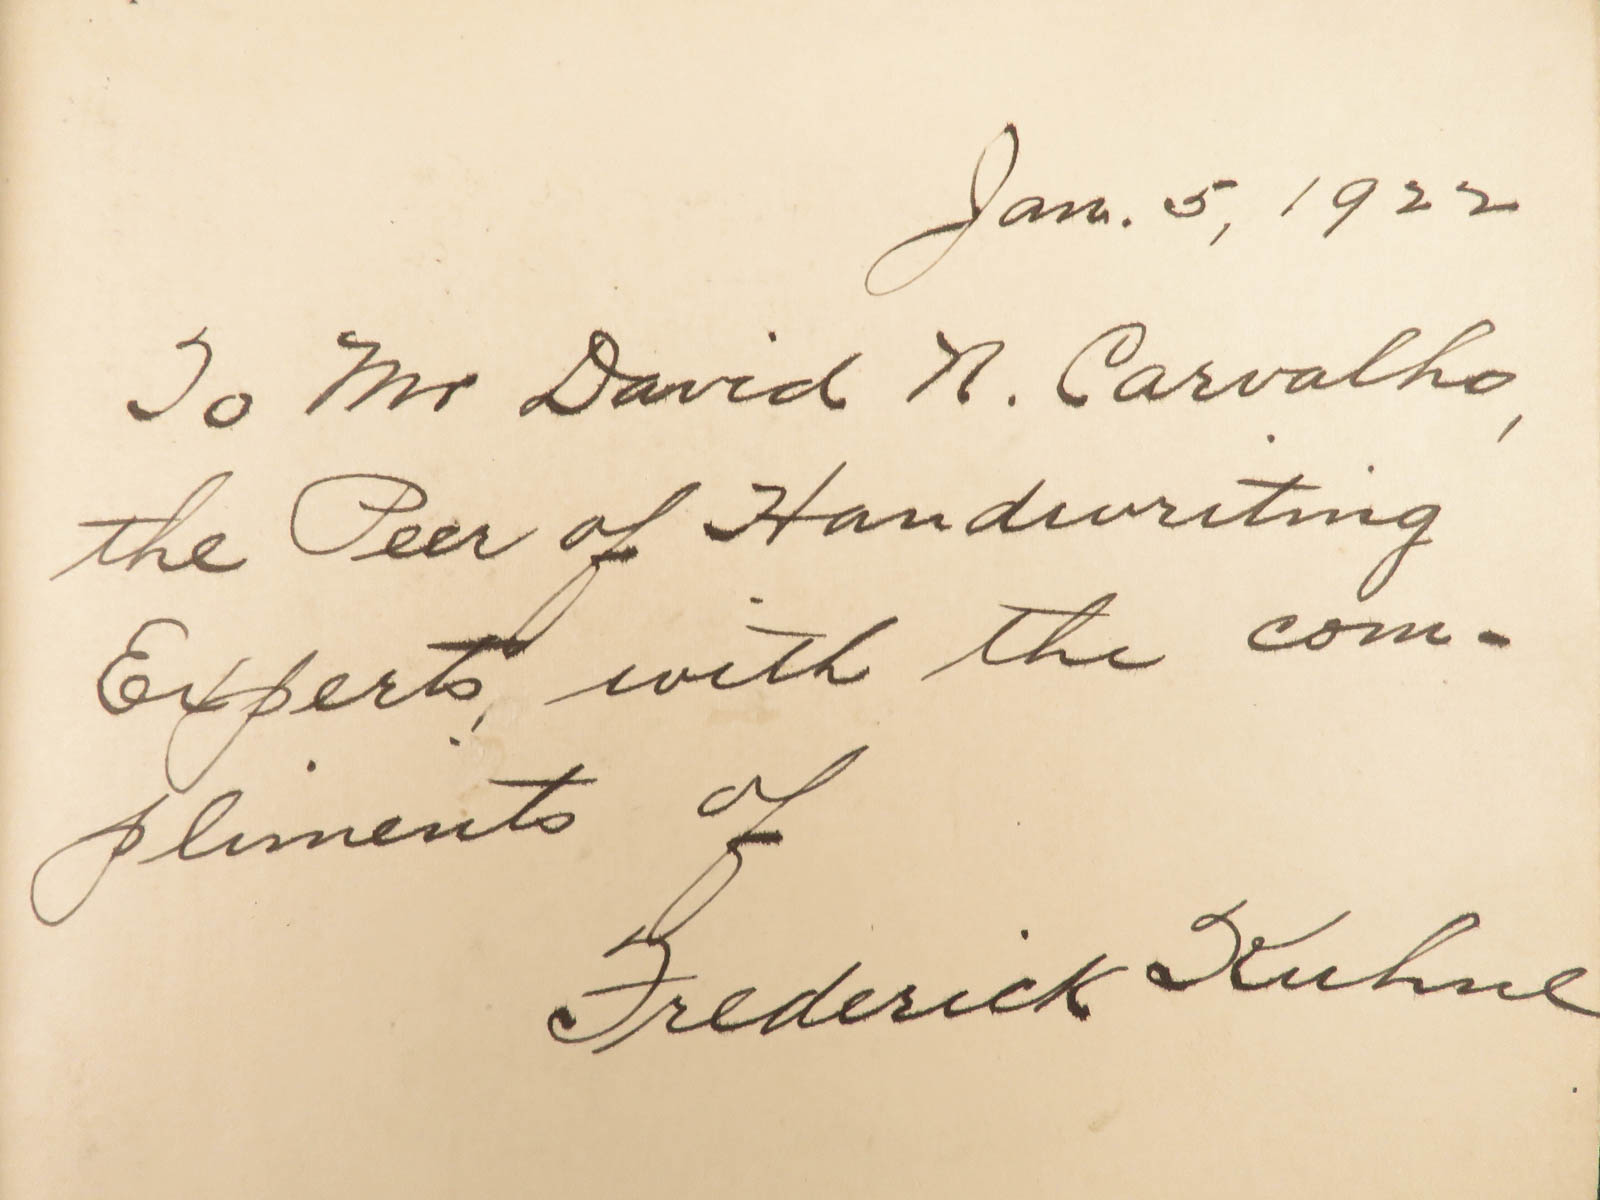 Jan. 5, 1922
To Mr David N. Carvalho,
the Peer of Handwriting
Experts, with the com-
pliments of
Frederick Kuhne